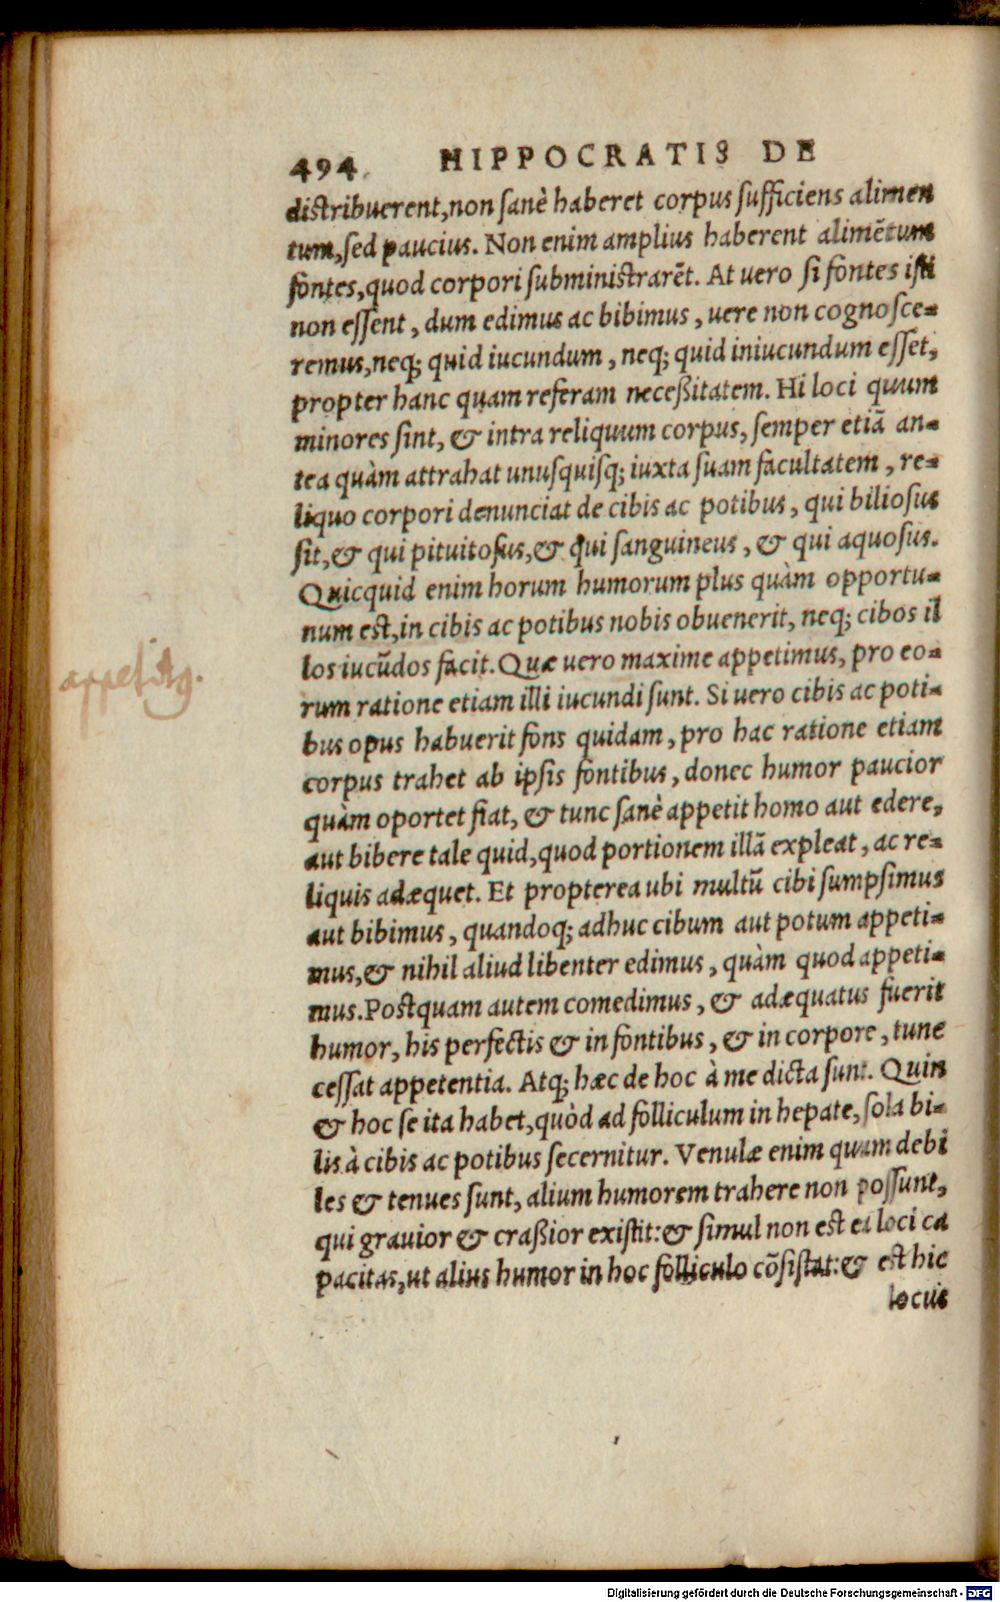 494. HIPPOCRATIS DE
distribuerent, non sanè haberet corpus sufficiens alimen
tum, sed paucius. Non enim amplius haberent alimẽtum
fontes, quod corpori subministrarẽt. At uero si fontes isti
non essent, dum edimus ac bibimus, uere non cognosce-
remus, neq; quid iucundum, neq; quid iniucundum esset,
propter hanc quam referam neceßitatem. Hi loci quum
minores sint, & intra reliquum corpus, semper etiã an-
tea quàm attrahat unusquisq; iuxta suam facultatem, re-
liquo corpori denunciat de cibis ac potibus, qui biliosus
sit, & qui pituitosus, & qui sanguineus, & qui aquosus.
Quicquid enim horum humorum plus quàm opportu-
num est, in cibis ac potibus nobis obuenerit, neq; cibos il
los iucũdos facit. Quæ uero maxime appetimus, pro eo-
rum ratione etiam illi iucundi sunt. Si uero cibis ac poti-
bus opus habuerit fons quidam, pro hac ratione etiam
corpus trahet ab ipsis fontibus, donec humor paucior
quàm oportet fiat, & tunc sanè appetit homo aut edere,
aut bibere tale quid, quod portionem illã expleat, ac re-
liquis adæquet. Et propterea ubi multũ cibi sumpsimus
aut bibimus, quandoq; adhuc cibum aut potum appeti-
mus, & nihil aliud libenter edimus, quàm quod appeti-
mus. Postquam autem comedimus, & adæquatus fuerit
humor, his perfectis & in fontibus, & in corpore, tunc
cessat appetentia. Atq; hæc de hoc à me dicta sunt. Quin
& hoc se ita habet, quòd ad folliculum in hepate, sola bi-
lis à cibis ac potibus secernitur. Venulæ enim quum debi
les & tenues sunt, alium humorem trahere non possunt,
qui grauior & craßior existit: & simul non est ea loci ca
pacitas, ut alius humor in hoc folliculo cõsistat: & est hic
locus
appetitg.
Digitalisierung gefördert durch die Deutsche Forschungsgemeinschaft - DFG